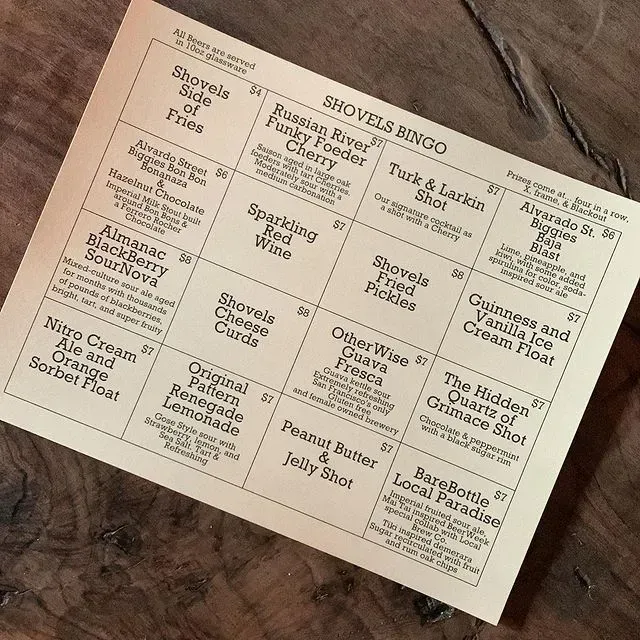 All Beers are served
in 10oz glassware
SHOVELS BINGO
Prizes come at... four in a row,
X, frame, & Blackout
Shovels
Side
of
Fries
$4
Russian River
Funky Foeder
Cherry
$7
Saison aged in large oak
foeders with tart Cherries.
Moderately sour with a
medium carbonation
Turk & Larkin
Shot
$7
Our signature cocktail as
a shot with a Cherry
Alvarado St.
Biggies
Baja
Blast
$6
Lime, pineapple, and
kiwi, with some added
spirulina for color, soda-
inspired sour ale
Alvardo Street
Biggies Bon Bon
Bonanaza
&
Hazelnut Chocolate
$6
Imperial Milk Stout built
around Bon Bons &
a Ferrero Rocher
Chocolate
Sparkling
Red
Wine
$7
Shovels
Fried
Pickles
$8
Guinness and
Vanilla Ice
Cream Float
$7
Almanac
BlackBerry
SourNova
$8
Mixed-culture sour ale aged
for months with thousands
of pounds of blackberries,
bright, tart, and super fruity
Shovels
Cheese
Curds
$8
OtherWise
Guava
Fresca
$7
Guava kettle sour
Extremely refreshing
San Francisco's only
Gluten free
and female owned brewery
The Hidden
Quartz of
Grimace Shot
$7
Chocolate & peppermint
with a black sugar rim
Nitro Cream
Ale and
Orange
Sorbet Float
$7
Original
Pattern
Renegade
Lemonade
$7
Gose Style sour with
Strawberry, lemon, and
Sea Salt, Tart &
Refreshing
Peanut Butter
&
Jelly Shot
$7
BareBottle
Local Paradise
$7
Imperial fruited sour ale,
Mai Tai inspired BeerWeek
special collab with Local
Brew Co.
Tiki inspired demerara
Sugar recirculated with fruit
and rum oak chips